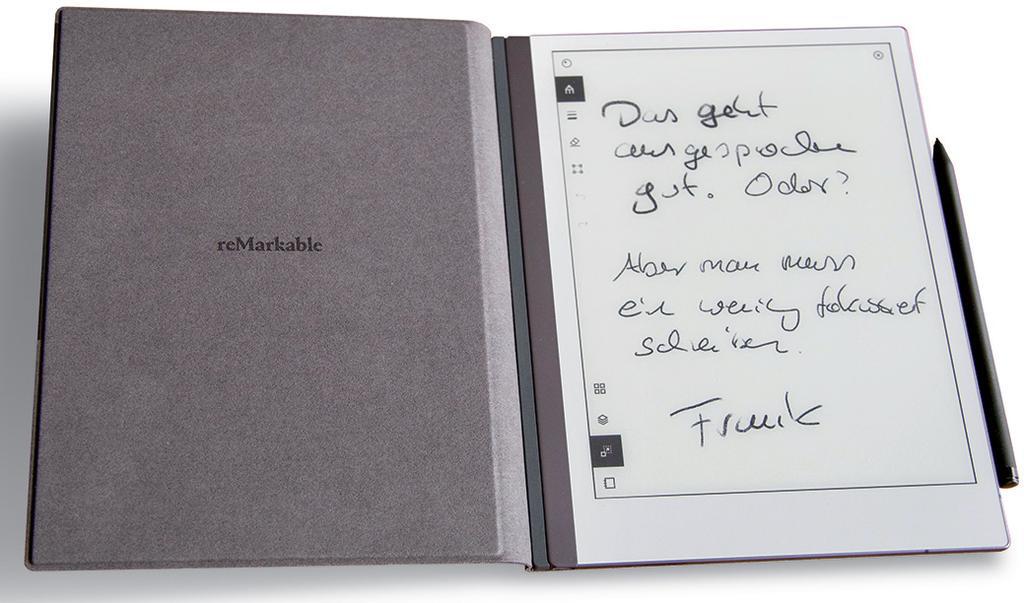 reMarkable
Das geht
ausgesprochen
gut. Oder?
Aber man muss
ein wenig fokussiert
schreiben.
Frank